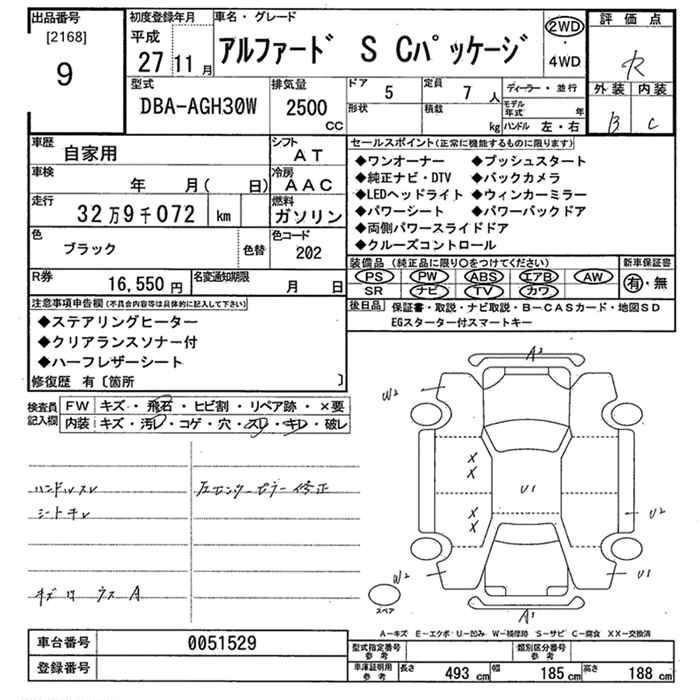 出品番号
[2168]
9
初度登録年月
平成
27年11月
車名・グレード
アルファード S Cパッケージ
2WD
・
4WD
評価点
R
外装 内装
B C
型式
DBA-AGH30W
排気量
2500
CC
ドア 5
形状
定員 7 人
積載 kg
ディーラー・並行
モデル年式 年
ハンドル 左・右
車歴
自家用
シフト
AT
車検
年 月( 日)
冷房
AAC
走行
32万9千072 km
燃料
ガソリン
色
ブラック
色替
色コード
202
R券
16,550円
名変通知期限
月 日
セールスポイント(正常に機能するものに限ります)
◆ワンオーナー ◆プッシュスタート
◆純正ナビ・DTV ◆バックカメラ
◆LEDヘッドライト ◆ウィンカーミラー
◆パワーシート ◆パワーバックドア
◆両側パワースライドドア
◆クルーズコントロール
装備品 (純正品に限り○をつけてください)
PS PW ABS エアB AW
SR ナビ TV カワ
新車保証書
有・無
後日品
保証書・取説・ナビ取説・B-CASカード・地図SD
EGスターター付スマートキー
注意事項申告欄(不具合内容等は具体的に記入して下さい)
◆ステアリングヒーター
◆クリアランスソナー付
◆ハーフレザーシート
修復歴 有〔箇所 〕
検査員
記入欄
FW キズ・飛石・ヒビ割・リペア跡・×要
内装 キズ・汚レ・コゲ・穴・スレ・キレ・破レ
ハンドルスレ
シートキレ
左センターピラー修正
キズ凹 ウス A
A2
W2
X
X
U1
X
X
U2
W2
U1
A1
スペア
A-キズ E-エクボ U-凹み W-補修跡 S-サビ C-腐食 XX-交換済
車台番号 0051529
登録番号
型式指定番号
参考
類別区分番号
参考
車庫証明用
参考
長さ 493 cm 幅 185 cm 高さ 188 cm